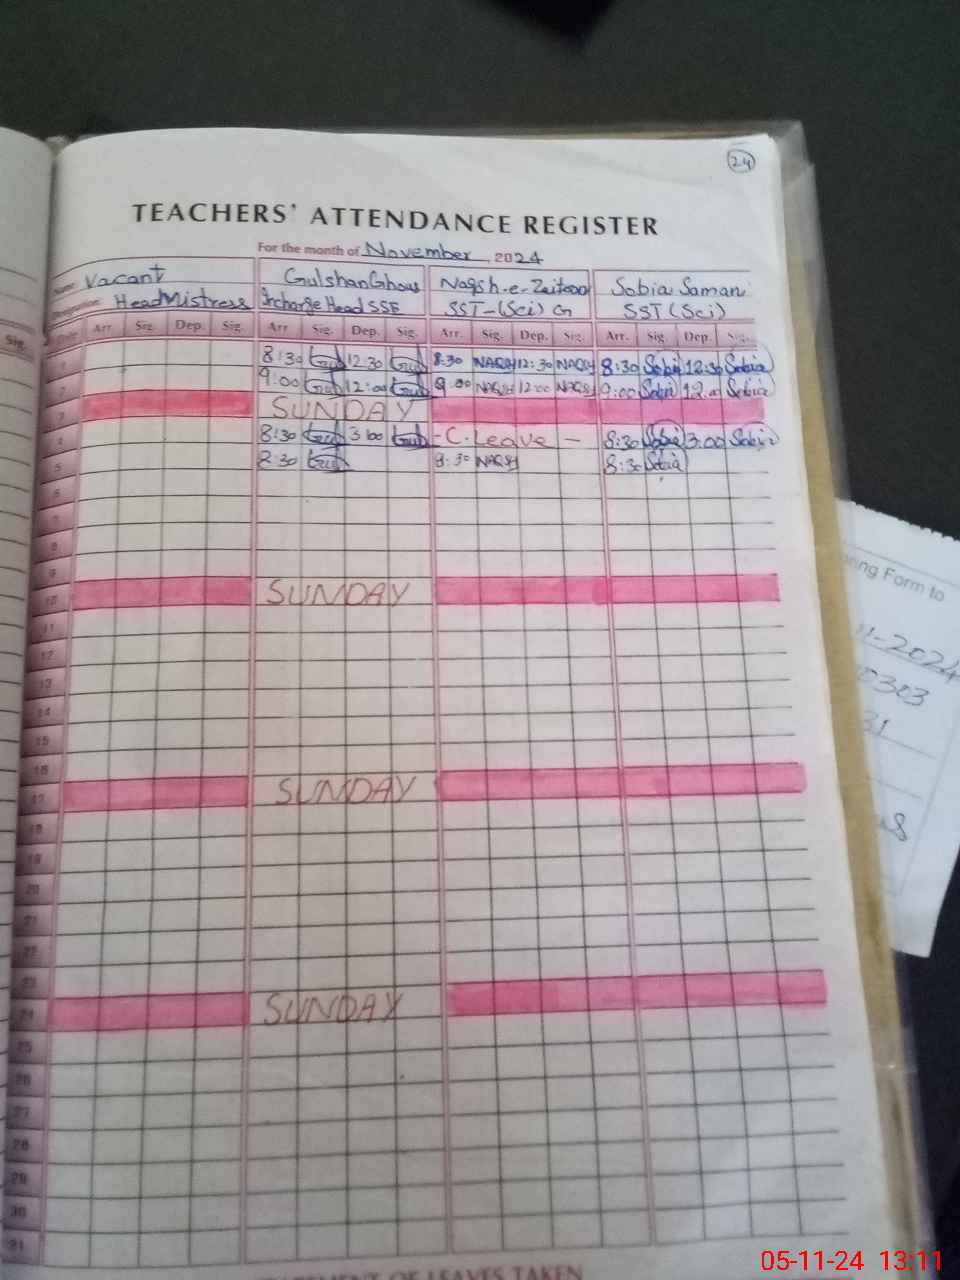 24
TEACHERS' ATTENDANCE REGISTER
For the month of November, 2024
Name: Vacant Gulshan Ghous Naqsh-e-Zaitoon Sobia Saman
Designation: Head Mistress Incharge Head SSE SST-(Sci) G SST (Sci)
Sig. Date Arr. Sig. Dep. Sig. Arr Sig. Dep. Sig. Arr. Sig. Dep. Sig. Arr. Sig. Dep. Sig.
1 8:30 12:30 8:30 NAQSH 12:30 NAQSH 8:30 Sobia 12:30 Sobia
2 9:00 12:00 9:00 NAQSH 12:00 NAQSH 9:00 Sobia 12:00 Sobia
3 SUNDAY
4 8:30 3:00 - C. Leave - 8:30 Sobia 3:00 Sobia
5 8:30 8:30 NAQSH 8:30 Sobia
6
7
8
9
10 SUNDAY
11
12
13
14
15
16
17 SUNDAY
18
19
20
21
22
23
24 SUNDAY
25
26
27
28
29
30
31
STATEMENT OF LEAVES TAKEN
Form to
11-2024
0303
31
05-11-24 13:11